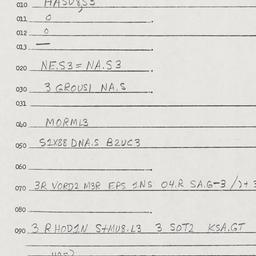 010 HASU8,S3
011 0
012 0
013 —
020 NE.S3 = NA.S3
030 3 GROUS1 NA.S
031
040 MORML3
050 S1X88 DNA.S B2UC3
060
070 3R VORD2 M3R EPS 1NS 04.R SA.6-3
080
090 3 RHOD1N S+MU8.L3 3 SOT2 KSA.GT